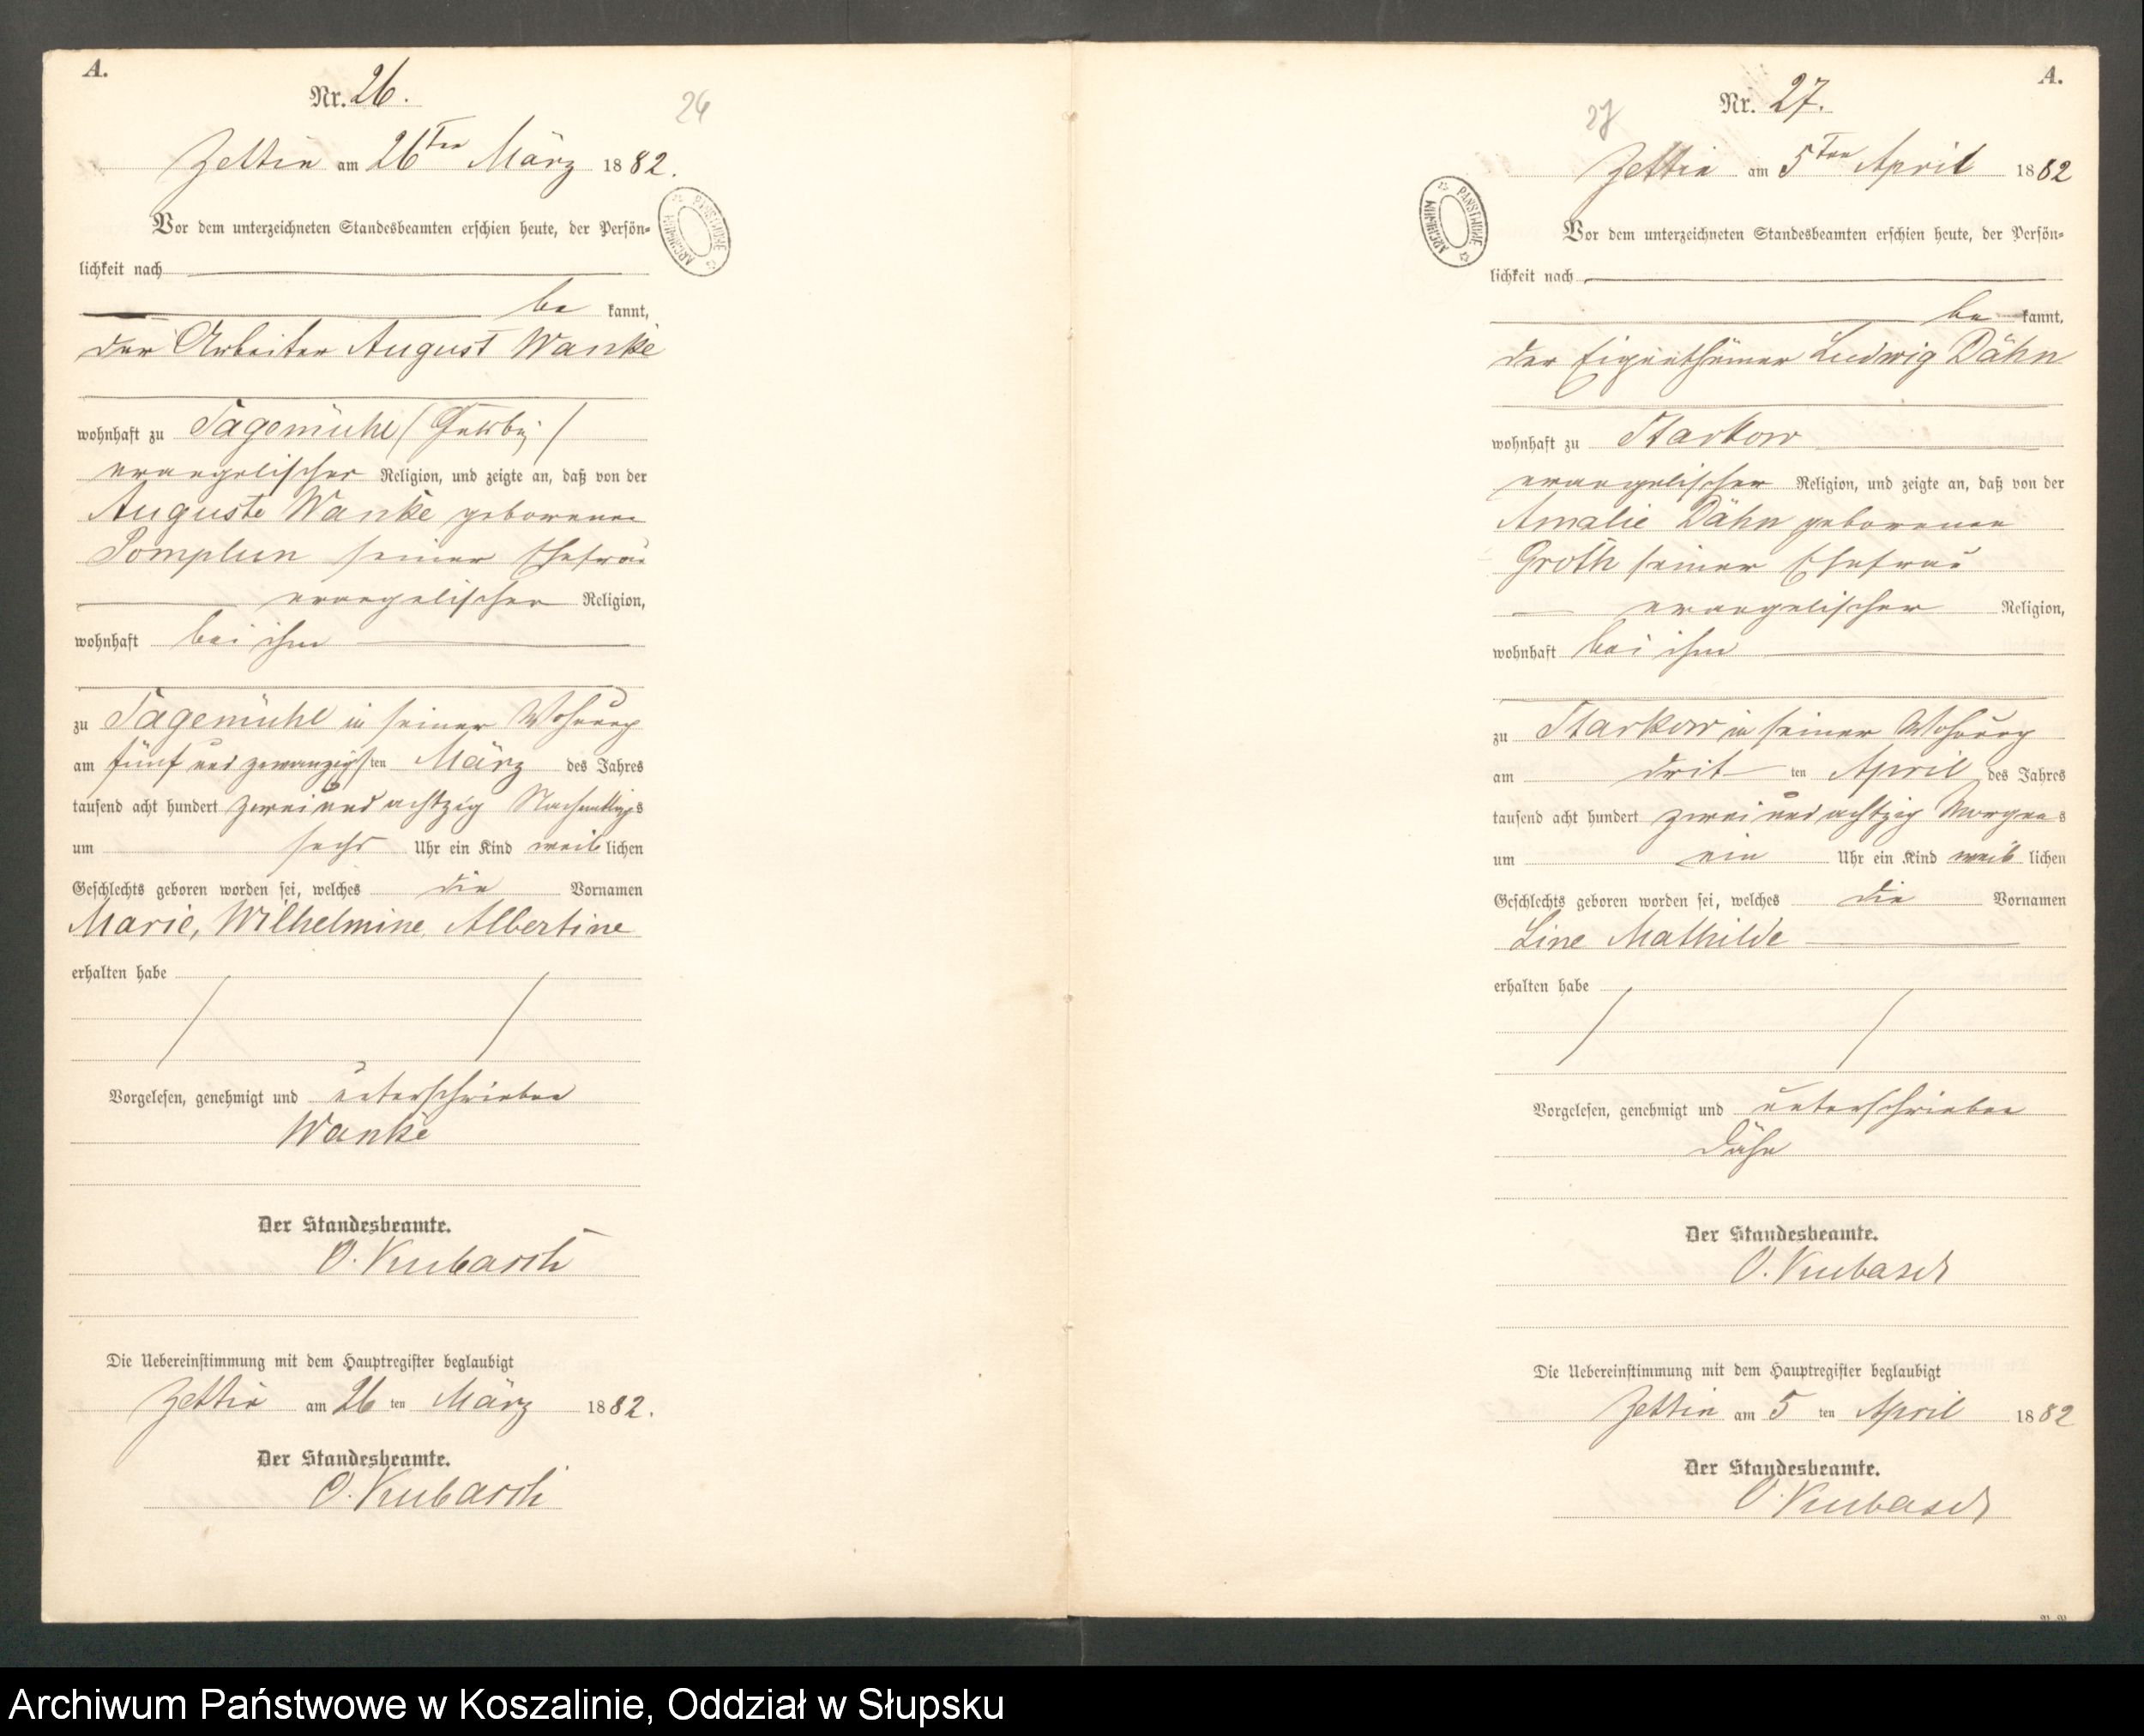 A.
Nr. 26.
26
Zettin am 26ten März 1882.
Vor dem unterzeichneten Standesbeamten erschien heute, der Persön-
lichkeit nach
be kannt,
der Arbeiter August Wanke
wohnhaft zu Sägemühl
evangelischer Religion, und zeigte an, daß von der
Auguste Wanke geborenen
Pomplun seiner Ehefrau
evangelischer Religion,
wohnhaft bei ihm
zu Sägemühl in seiner Wohnung
am fünf und zwanzigsten März des Jahres
tausend acht hundert zwei und achtzig Nachmittags
um sechs Uhr ein Kind weib lichen
Geschlechts geboren worden sei, welches die Vornamen
Marie, Wilhelmine, Albertine
erhalten habe
Vorgelesen, genehmigt und unterschrieben
Wanke
Der Standesbeamte.
O. Kubasch
Die Uebereinstimmung mit dem Hauptregister beglaubigt
Zettin am 26 ten März 1882.
Der Standesbeamte.
O. Kubasch
A.
Nr. 27.
27
Zettin am 5ten April 1882
ARCHIWUM PAŃSTWOWE
Vor dem unterzeichneten Standesbeamten erschien heute, der Persön-
lichkeit nach
be kannt,
der Eigenthümer Ludwig Dähn
wohnhaft zu Starkow
evangelischer Religion, und zeigte an, daß von der
Amalie Dähn geborenen
Groth seiner Ehefrau
evangelischer Religion,
wohnhaft bei ihm
zu Starkow in seiner Wohnung
am drit ten April des Jahres
tausend acht hundert zwei und achtzig Morgens
um ein Uhr ein Kind weib lichen
Geschlechts geboren worden sei, welches die Vornamen
Line Mathilde
erhalten habe
Vorgelesen, genehmigt und unterschrieben
Dähn
Der Standesbeamte.
O. Kubasch
Die Uebereinstimmung mit dem Hauptregister beglaubigt
Zettin am 5 ten April 1882
Der Standesbeamte.
O. Kubasch
Archiwum Państwowe w Koszalinie, Oddział w Słupsku